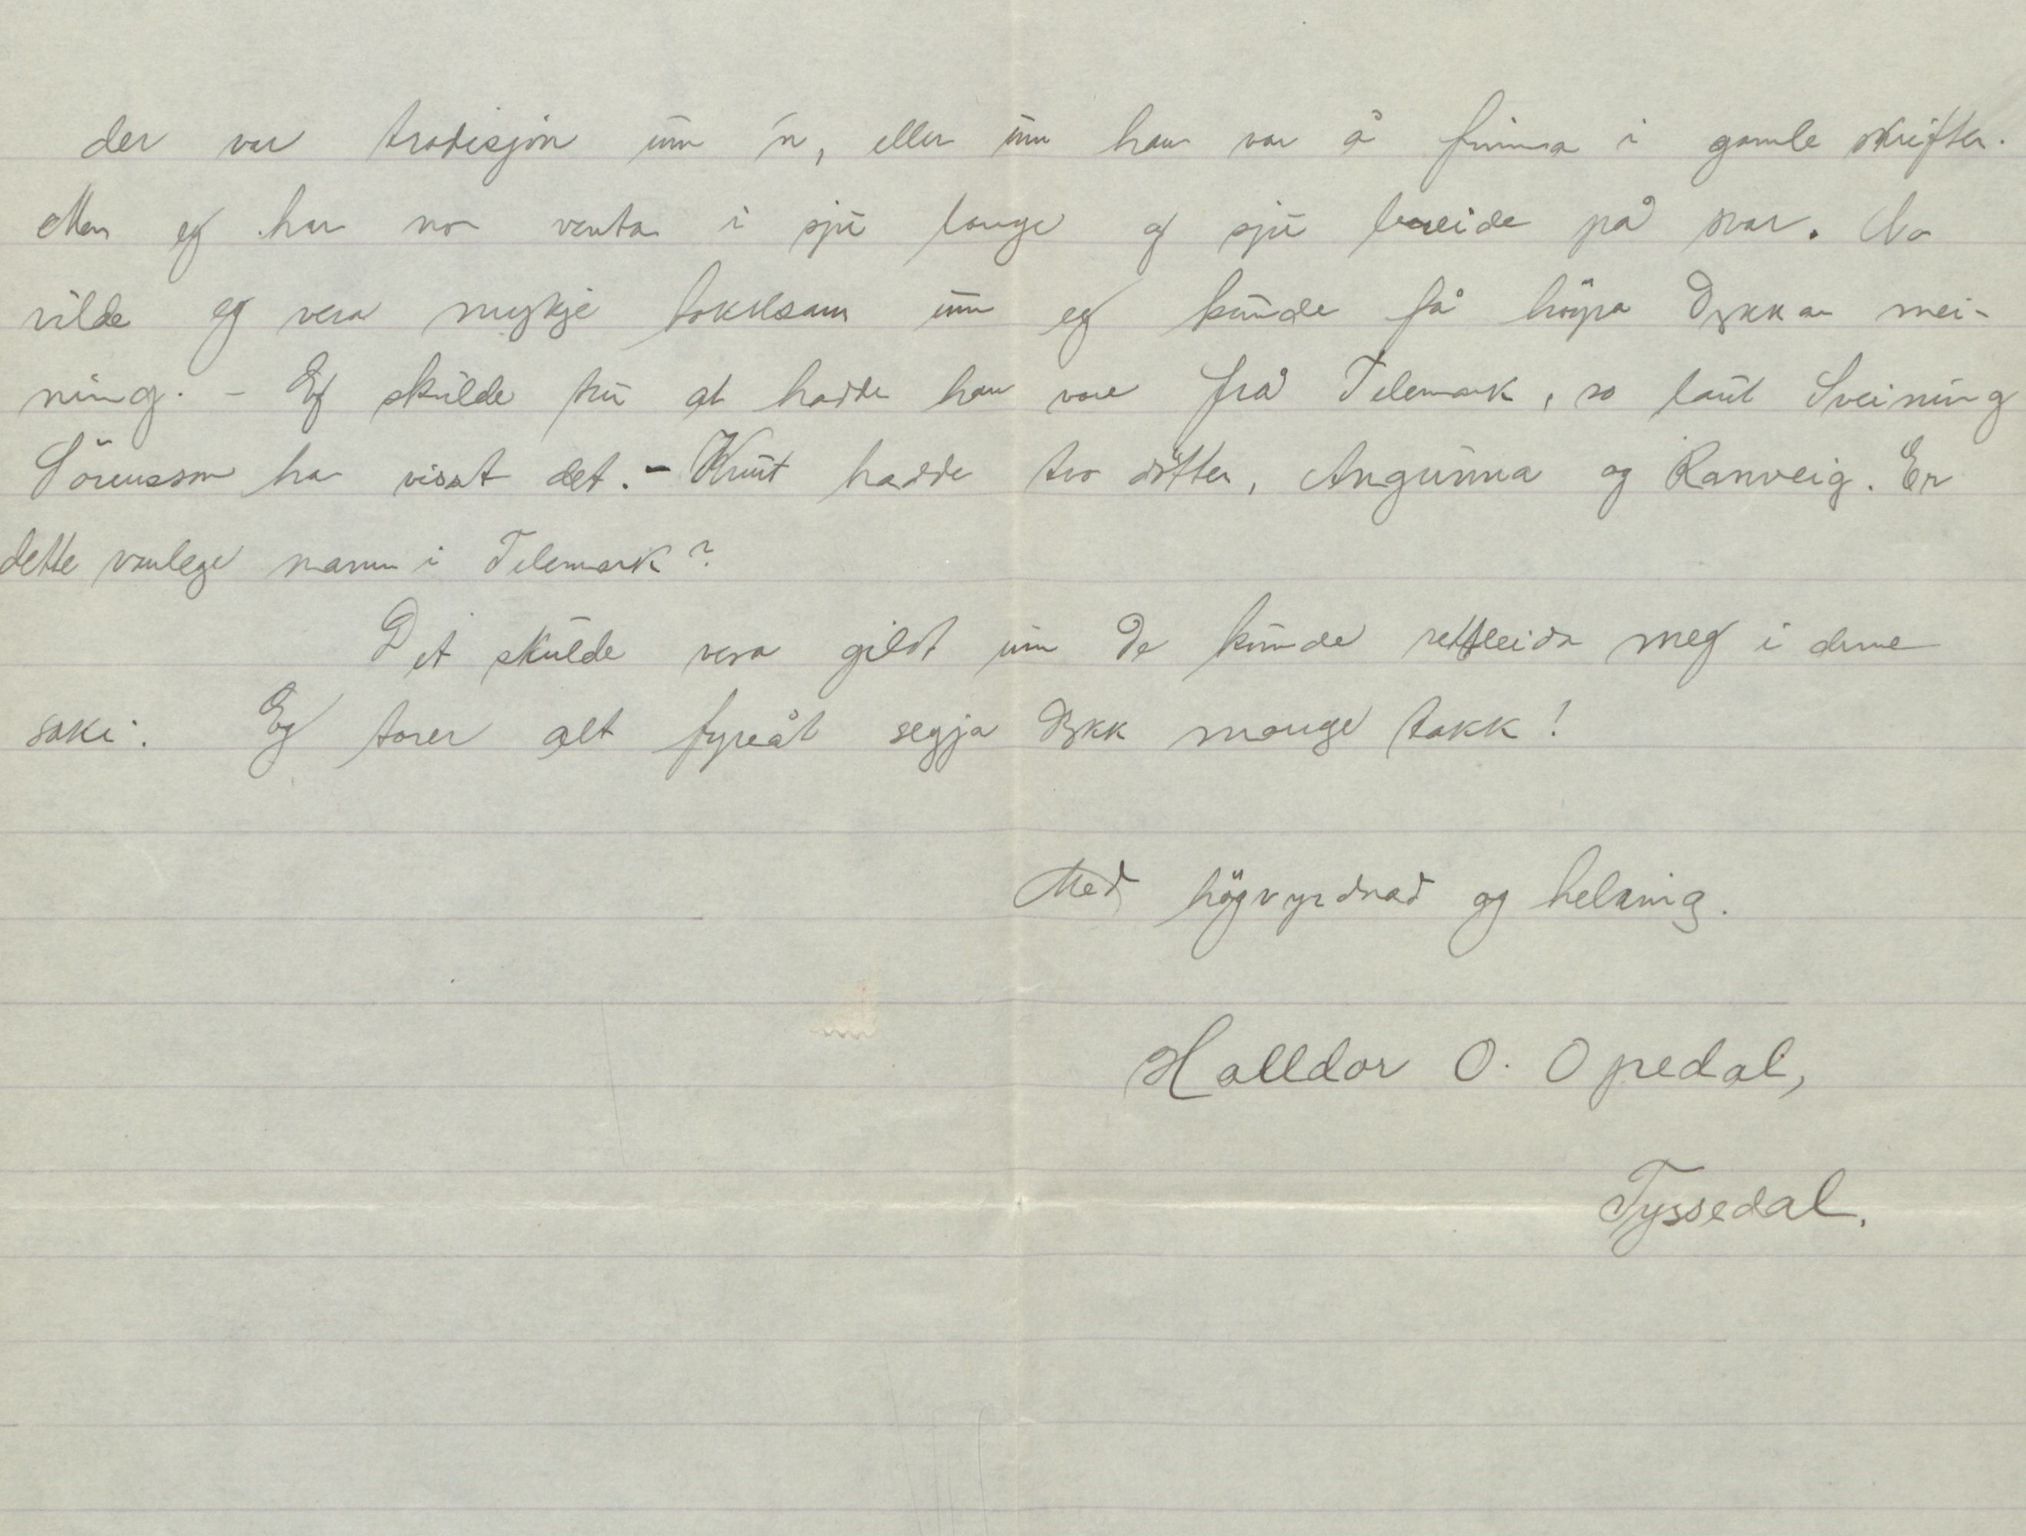 der var tradisjon um 'n, eller um han var å finna i gamle skrifter.
Men eg har no venta i sju lange og sju breide på svar. No
vilde eg vera mykje takksam um eg kunde få höyra Dykkar mei-
ning. - Eg skulde tru at hadde han vore frå Telemark, so laut Sveinung
Sörensson ha visst det. - Knut hadde tvo dötter, Angunna og Ranveig. Er
dette vanlege namn i Telemark?
Det skulde vera gildt um De kunde rettleida meg i denne
saki. Eg torer alt fyreåt segja Dykk mange takk!
Med högvyrdnad og helsing.
Halldor O. Opedal,
Tyssedal.